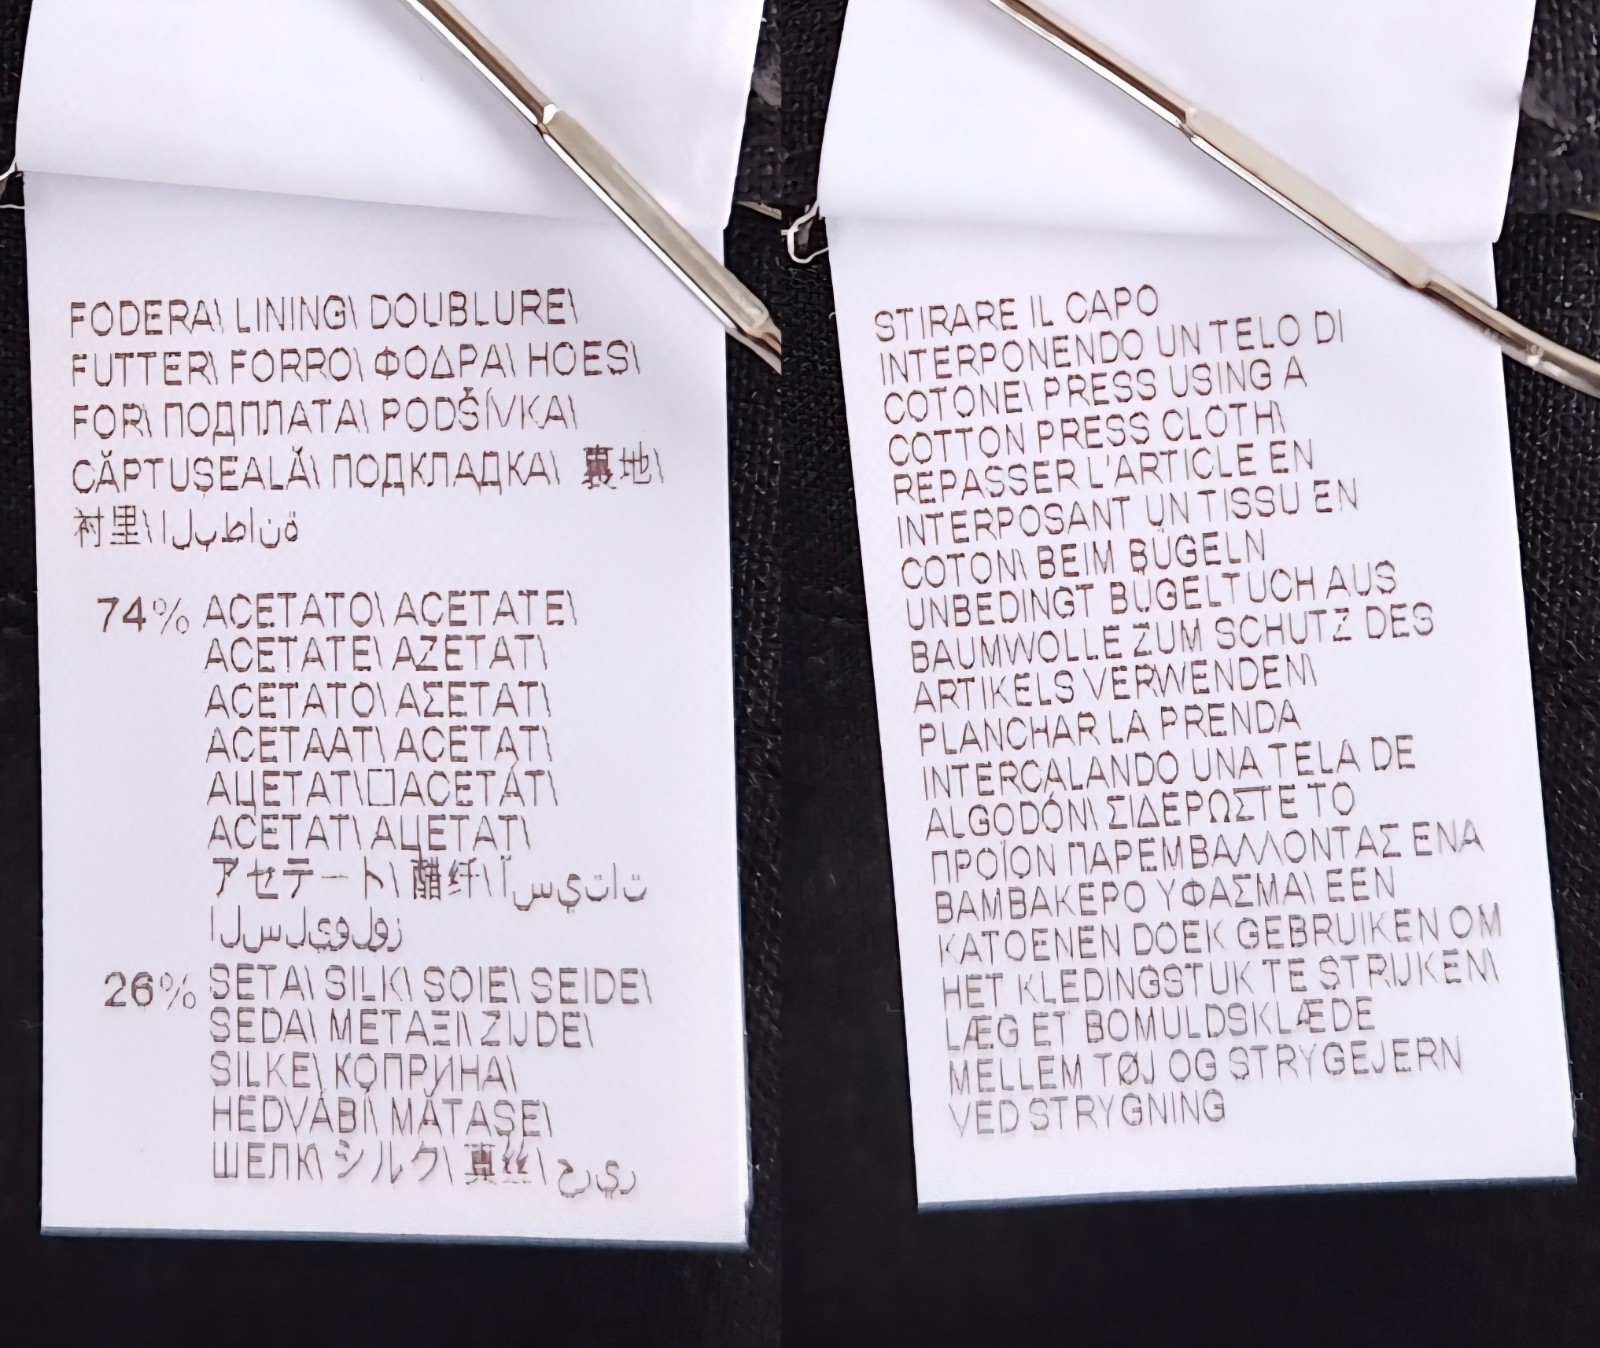 FODERA\ LINING\ DOUBLURE\
FUTTER\ FORRO\ ΦΟΔΡΑ\ HOES\
FOR\ ПОДПЛАТА\ PODŠÍVKA\
CĂPTUȘEALĂ\ ПОДКЛАДКА\ 裏地\
衬里\ البطانة
74% ACETATO\ ACETATE\
ACETATE\ AZETAT\
ACETATO\ ΑΣΕΤΑΤ\
ACETAAT\ ACETAT\
АЦЕТАТ\□ACETÁT\
ACETAT\ АЦЕТАТ\
アセテート\ 醋纤\ آسيتات
السليولوز
26% SETA\ SILK\ SOIE\ SEIDE\
SEDA\ ΜΕΤΑΞΙ\ ZIJDE\
SILKE\ КОПРИНА\
HEDVÁBÍ\ MĂTASE\
ШЕЛК\ シルク\ 真丝\ حرير
STIRARE IL CAPO
INTERPONENDO UN TELO DI
COTONE\ PRESS USING A
COTTON PRESS CLOTH\
REPASSER L'ARTICLE EN
INTERPOSANT UN TISSU EN
COTON\ BEIM BÜGELN
UNBEDINGT BÜGELTUCH AUS
BAUMWOLLE ZUM SCHUTZ DES
ARTIKELS VERWENDEN\
PLANCHAR LA PRENDA
INTERCALANDO UNA TELA DE
ALGODÓN\ ΣΙΔΕΡΩΣΤΕ ΤΟ
ΠΡΟΪΟΝ ΠΑΡΕΜΒΑΛΛΟΝΤΑΣ ΕΝΑ
ΒΑΜΒΑΚΕΡΟ ΥΦΑΣΜΑ\ EEN
KATOENEN DOEK GEBRUIKEN OM
HET KLEDINGSTUK TE STRIJKEN\
LÆG ET BOMULDSKLÆDE
MELLEM TØJ OG STRYGEJERN
VED STRYGNING